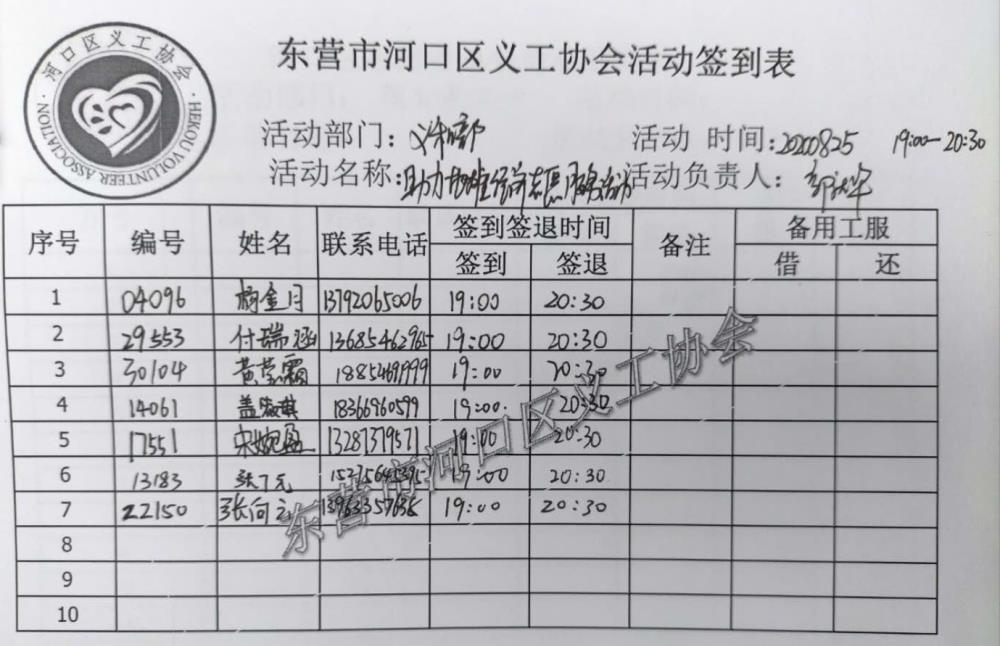 河口区义工协会
HEKOU VOLUNTEER ASSOCIATION
东营市河口区义工协会活动签到表
活动部门：
活动 时间：20200825 19:00-20:30
活动名称：助力地摊经济志愿服务活动
活动负责人：
序号 编号 姓名 联系电话 签到签退时间 备注 备用工服
签到 签退 借 还
1 04096 杨金月 13792065006 19:00 20:30
2 29553 付瑞涵 13685462965 19:00 20:30
3 30104 黄莹霜 18854691999 19:00 20:30
4 14061 盖俊琪 18366960599 19:00 20:30
5 17551 宋婉盈 13287379571 19:00 20:30
6 13183 张丁元 19:00 20:30
7 22150 张向云 19:00 20:30
8
9
10
东营市河口区义工协会